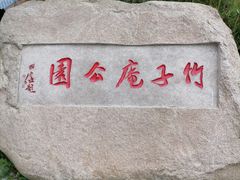 竹子庵公園